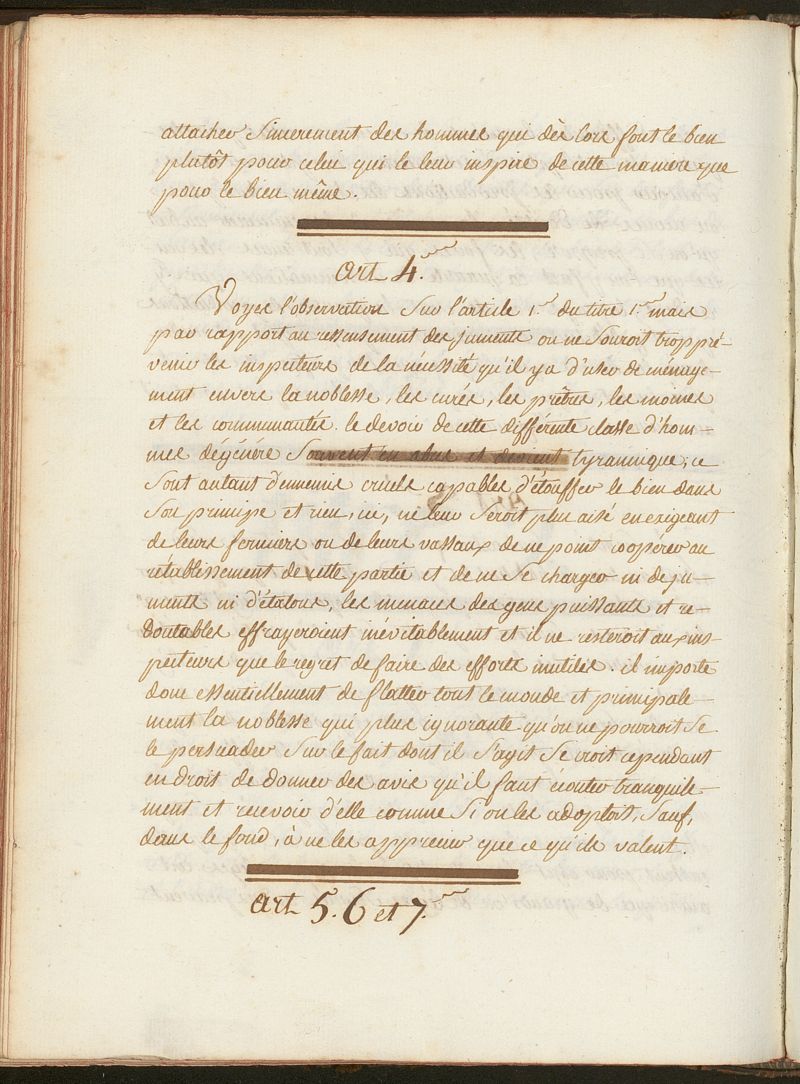 attacher sincerement des hommes qui dès lors font le bien
plutôt pour celui qui le leur inspire de cette maniere que
pour le bien même.
art 4.eme
Voyes l'observation sur l'article 1.er du titre 1.er mais
par rapport au ressensement des juments on ne sauroit trop pré-
venir les inspecteurs de la nécessité qu'il y a d'user de ménage-
ment envers la noblesse, les curés, les prêtres, les moines
et les communautés. le devoir de cette différente classe d'hom-
mes dégénére souvent en abus et devient tyrannique; ce
sont autant d'ennemis cruels capables d'étouffer le bien dans
son principe et rien, ici, ne leur seroit plus aisé en exigeant
de leurs fermiers ou de leurs vassaux de ne point coopérer au
rétablissement de cette partie et de ne se charger ni de ju-
ments ni d'étalons, les menaces des gens puissants et re-
doutables effrayeroient inévitablement et il ne resteroit aux ins-
pecteurs que le regret de faire des efforts inutiles. il importe
donc essentiellement de flatter tout le monde et principale-
ment la noblesse qui plus ignorante qu'on ne pourroit se
le persuader sur le fait dont il s'agit se croit cependant
en droit de donner des avis qu'il faut écouter tranquile-
ment et recevoir d'elle comme si on les adoptoit, sauf,
dans le fond, à ne les apprecier que ce qu'ils valent.
art 5. 6 et 7.eme